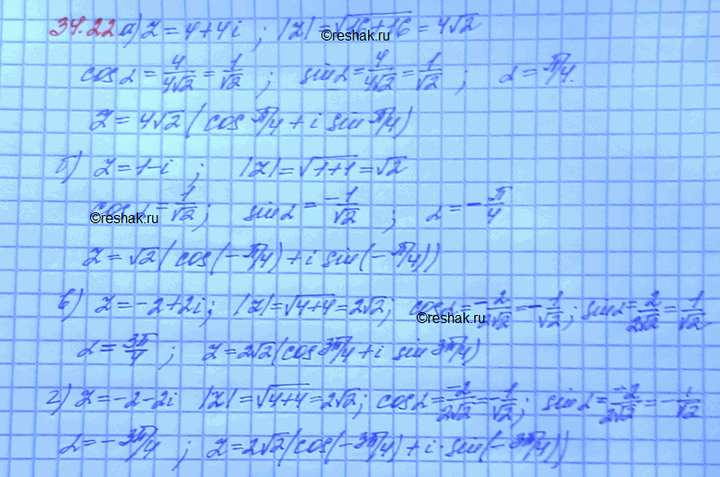 34.22 а) z = 4+4i ; |z| = √16+16 = 4√2
©reshak.ru
cos α = 4/4√2 = 1/√2 ; sin α = 4/4√2 = 1/√2 ; α = π/4.
z = 4√2 ( cos π/4 + i sin π/4 )
б) z = 1-i ; |z| = √1+1 = √2
cos α = 1/√2 ; sin α = -1/√2 ; α = -π/4
©reshak.ru
z = √2 ( cos(-π/4) + i sin(-π/4))
в) z = -2+2i ; |z| = √4+4 = 2√2 ; cos α = -2/2√2 = -1/√2 ; sin α = 2/2√2 = 1/√2
©reshak.ru
α = 3π/4 ; z = 2√2 (cos 3π/4 + i sin 3π/4)
г) z = -2-2i |z| = √4+4 = 2√2 ; cos α = -2/2√2 = -1/√2 ; sin α = -2/2√2 = -1/√2
α = -3π/4 ; z = 2√2 (cos(-3π/4) + i · sin(-3π/4))